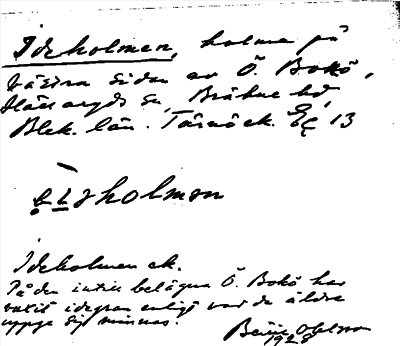 Ideholmen, holme på
västra sidan av Ö. Bokö,
Hällaryds sn, Bräkne hd,
Blek. län. Tärnö ek. 13
holmen
Ideholmen ek.
På den intill belägna Ö. Bokö har
växt idegran enligt vad de äldre
uppge sig minnas.
Bertil Ohlsson
1928